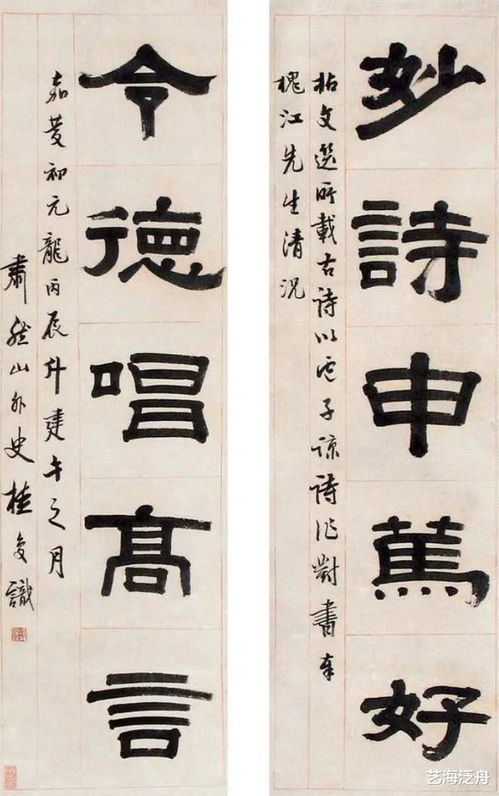 妙詩申篤好
拈文選所載古詩以盧子諒詩作對書奉
槐江先生清況
令德唱髙言
嘉慶初元龍丙辰斗建午之月
肅然山外史桂复識
艺海泛舟